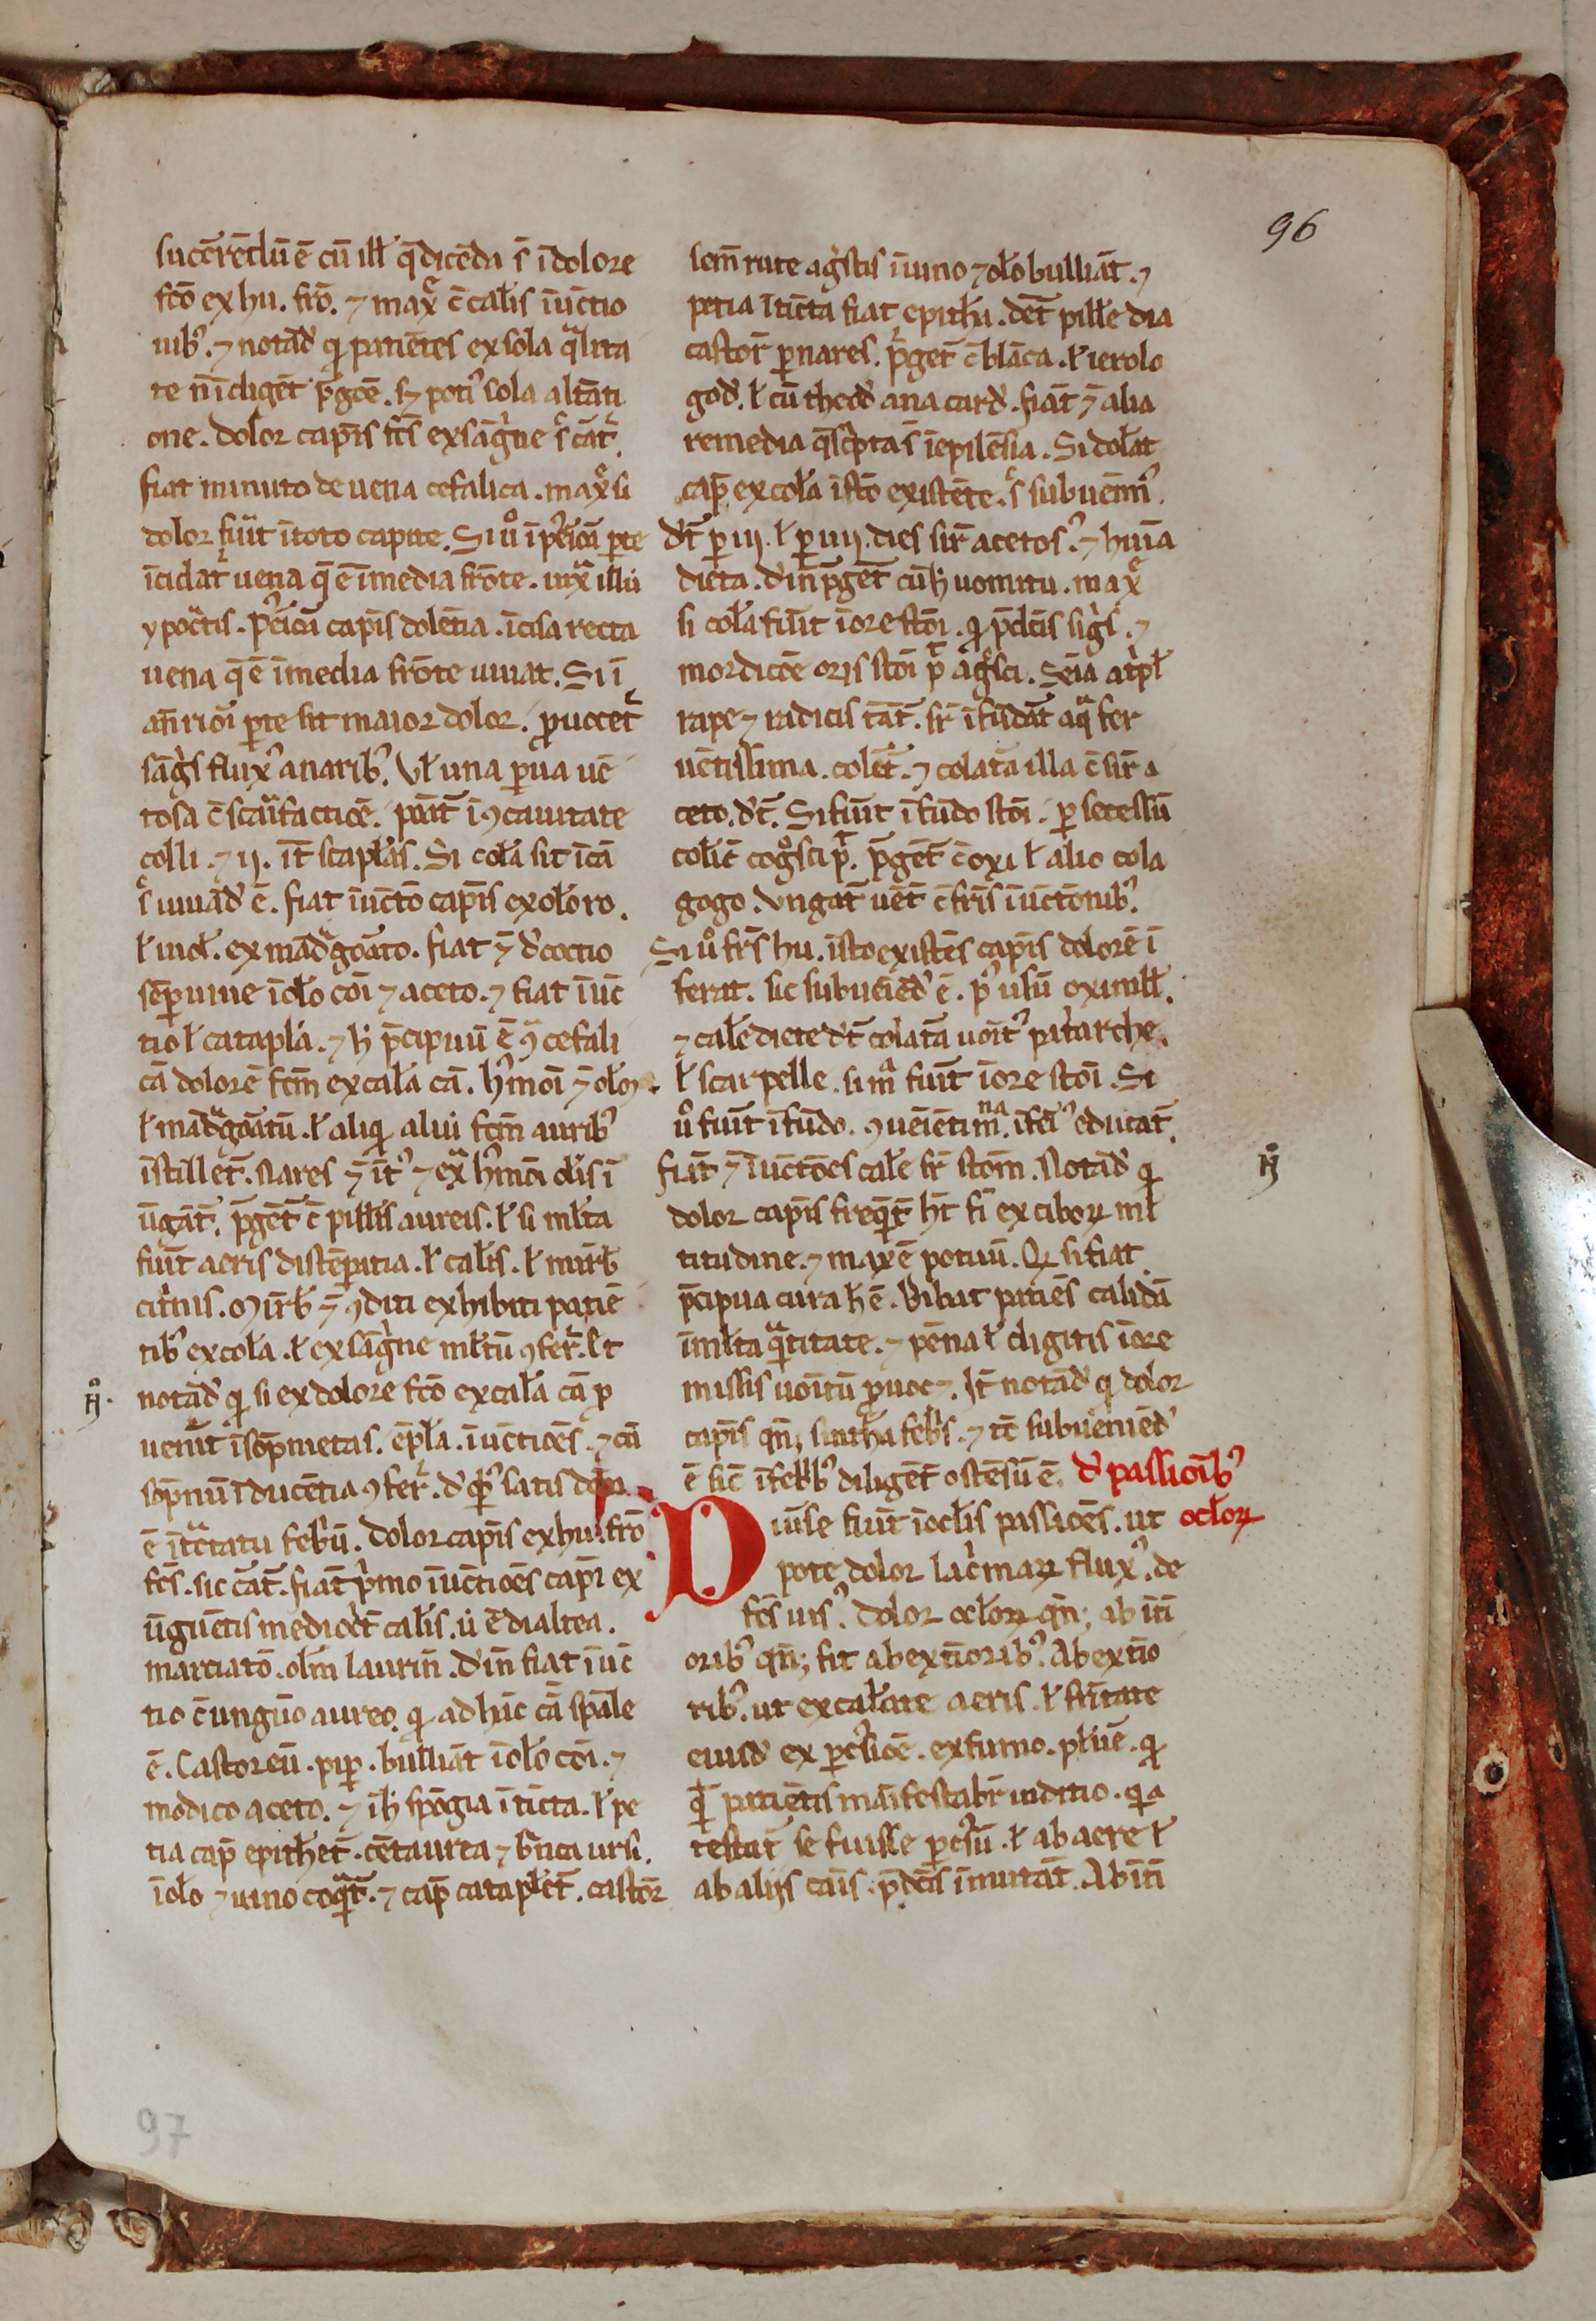 96
sucērēdū ē cū ill' q̄ dicēda s̄ ī dolore
fcō ex hu. frō. ⁊ max̄ c̄ calīs īūctio
nibꝰ. ⁊ notād' qꝫ patiētes ex sola q̄lita
te n̄ īdigēt p̄gōe. sꝫ potiꝰ sola altāti
one. Dolor capīs fcs̄ ex sāgīne s̄ cāt'.
fiat minuto de uena cefalica. max̄ si
dolor fu'it ī toto capite. Si ū ī pticīa pte
īcidat' uena q̄ ē ī media frōte. iux̄ illū
ypoc̄tis. pticīa capīs dolētia. īcisa recta
uena q̄ ē ī media frōte iuuat. Si ī
āriōī pte sit maior dolor. puocet'
sāgīs fluxꝰ a naribꝰ. Vl' una pua uē
tosa c̄ sca'ifactiōe. pāt' ī ꝯcauitate
colli. ⁊ ij. īt' scaplās. Si colā sit ī cā
s̄ iuuād' ē. fiat īūctō capīs ex oleo ro.
l' uiol'. ex mādgoāto. fiat ⁊̄ d'coctio
sēpuiue ī oleo cōī ⁊ aceto. ⁊ fiat īūc
tio l' catapla. ⁊ h' p̄cipuū ē ꝯ cefali
cā dolorē fcm̄ ex cala cā. hꝰmōi ⁊̄ oleoꝝ
l' mādgoātū. l' aliqꝫ alui fcm̄ auribꝰ
īstillet'. Nares ⁊̄ ītꝰ ⁊ ex̄ hꝰmōi oleis ī
ūgāt'. p̄get' c̄ pill'is aureis. l' si mlta
fu'it aeris distēpātia. l' calīs. l' mirb'
citnis. Mirb' ⁊̄ ꝯditi exhibiti patiē
tibꝰ ex cola. l' ex sāgīne mltū ꝯfer̄t. Et
notād' qꝫ si ex dolore fcō ex cala cā p
ueniūt īsōpnietas. ēpla. īūctiōes. ⁊ cā
sōpnū īducētia ꝯfer̄t. d' qbꝰ satis dcm
ē ī tctatu febꝛū. Dolor capīs ex hu. frō
fcs̄. sic cāt'. fiāt pꝰmo īūctiōes capī ex
ūguētis mediocꝛt calīs. ū ē dialtea.
marciatō. olm laurin̄. d'in fiat īūc
tio c̄ unguō aureo. qꝫ ad hūc cā spāle
ē. Castoreū. pip. bulliāt ī oleo cōi. ⁊
modico aceto. ⁊ ī h' spōgia ītīcta. l' pe
tia cap̄ epithet'. cētaurea ⁊ bn̄ca ursi.
ī oleo ⁊ uino coq̄t'. ⁊ cap̄ cataplet'. castor̄
sem̄ rute ag'stis ī uino ⁊ oleo bulliāt. ⁊
petia ītīcta fiat epithu. det' pill'e dia
castor̄ p nares. p̄get' c̄ blāca. l' ierolo
god'. l' cū theod' ana card'. fiāt ⁊̄ alia
remedia q̄ scripta s̄ ī epilēsia. Si dolat
cap̄ ex cola ī stō existēte. s̄ subuēimꝰ.
d't' p iij. l' p iiij. dies sir̄ acetosꝰ. ⁊ huīa
dieta. d'in p̄get' cū h' uomitu. max̄
si cola fu'it ī ore stōī. qꝫ p̄dc̄is sigīs. ⁊
mordicōe oris stōī p̄t āgsci. Seīa atpl'
rape ⁊ radicis tāt'. sr̄ īfūdāt' aq̄ fer
uētissima. colet'. ⁊ colatā illa c̄ sir̄ a
ceto. d't'. Si fu'it ī fūdo stōi. p secessū
colic̄ cogsci p̄t. p̄get' c̄ oxi l' alio cola
gogo. Vngat' uēt' c̄ fris īūctōnibꝰ.
Si ū frs̄ hu. ī stō existēs capīs dolorē ī
ferat. sic subueīēd' ē. pꝰ usū oximll'.
⁊ cale diete d't' colatā uoītꝰ patarche.
l' scarpelle. si mā fu'it ī ore stōī. Si
ū fu'it ī fūdo. ꝯueīēti mna. īfeiꝰ educat'.
fiāt ⁊̄ īūctōes cale sr̄ stōm. Notād' qꝫ
dolor capīs freq̄t' ht̄ fi' ex ciboꝝ ml
titudine. ⁊ maxē potuū. Qꝫ si fiat
p̄cipua cura h' ē. Bibat patiēs calidā
ī mlta q̄titate. ⁊ pēna l' digitis ī ore
missis uoītū puocꝫ. It' notād' qꝫ dolor
capīs qn̄qꝫ sintha febīs. ⁊ tc̄ subueniēd'
ē sic̄ ī febꝰbꝰ diligēt' ostēsū ē. d' passiōibꝰ
oclōꝝ
Diu'se fiūt ī oclīs passiōes. ut
pote dolor lac'maꝝ fluxꝰ. de
fcs̄ uisꝰ. Dolor oclōꝝ qn̄qꝫ ab īti
oribꝰ qn̄qꝫ fit ab extīoribꝰ. Ab extīo
ribꝰ. ut ex calitate aeris. l' fritate
eiusd' ex pcussiōe. ex fumo. pluē. qꝫ
q̄ patiētis māifestabr iuditio. qꝫ a
testat' se fuisse pcussū. l' ab aere l'
ab alijs cāis p̄dc̄is īmutāt'. Ab īti
97